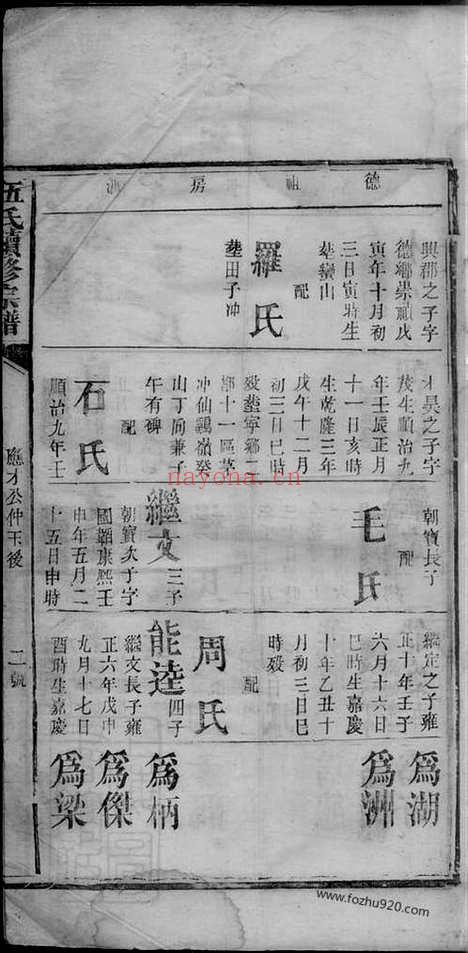 德祖房派
興郡之子字
德鄉崇禎戊
寅年十月初
三日寅時生
塟蠻山
配
羅氏
塟田子冲
才昊之子字
茂生順治九
年壬辰正月
十一日亥時
生乾隆三年
戊午十二月
初三日巳時
歿塟寧鄉二
都十一區茅
冲仙鵝嶺癸
山丁向兼子
午有碑
配
石氏
順治九年壬
朝寶長子
配
毛氏
繼文
三子
朝寶次子字
國韜康熙壬
申年五月二
十五日申時
繼定之子雍
正十年壬子
六月十六日
巳時生嘉慶
十年乙丑十
月初三日巳
時歿
配
周氏
能逵
四子
繼文長子雍
正六年戊申
九月十七日
酉時生嘉慶
為湖
為洲
為柄
為傑
為梁
伍氏續修宗譜
應才公仲玉後
二號
nayona.cn
www.fozhu920.com